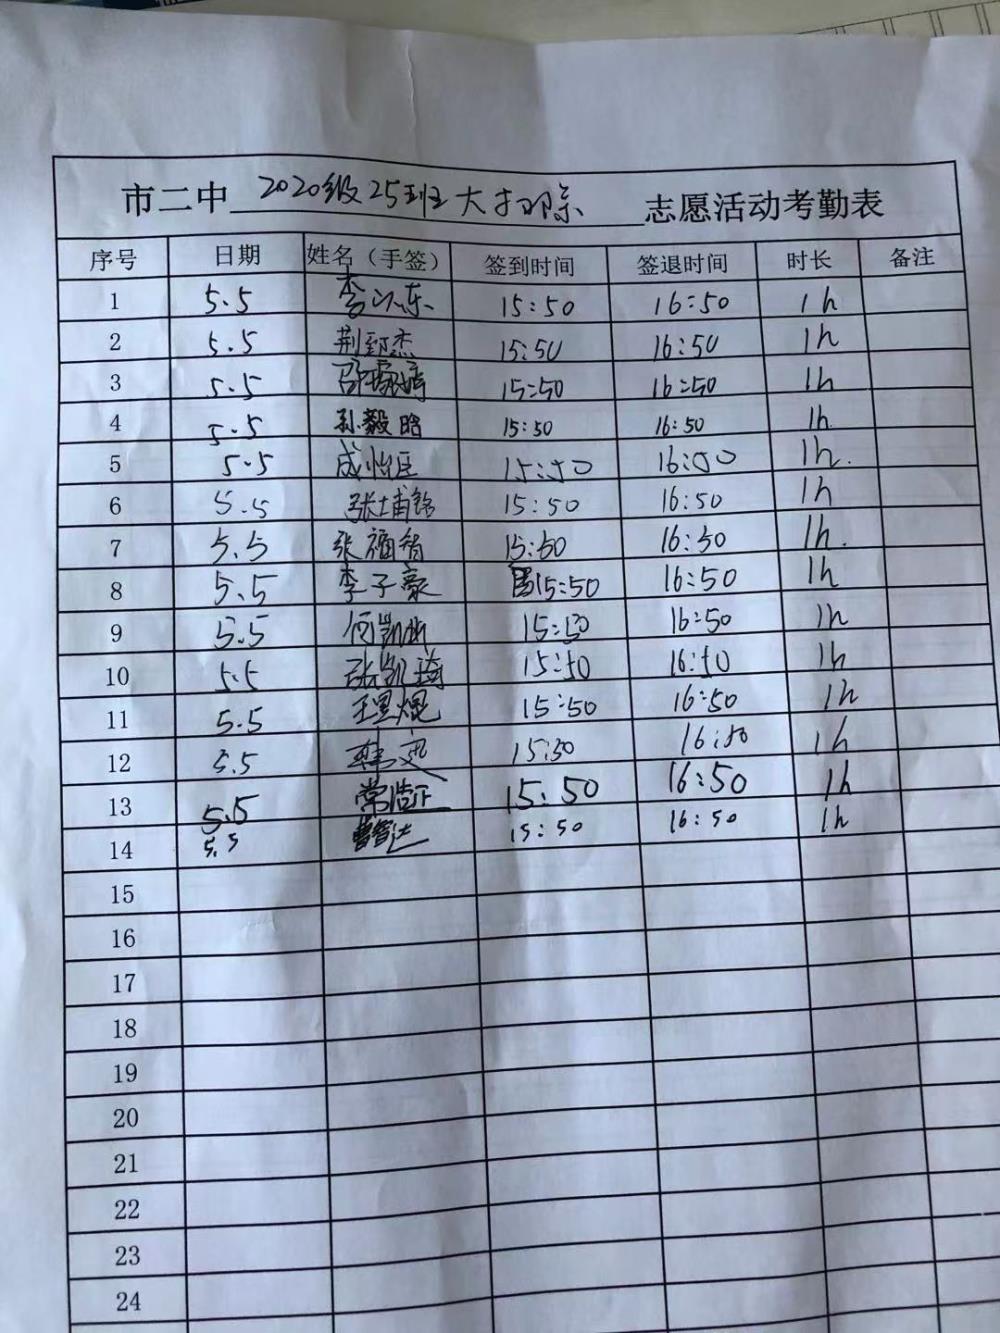 市二中 2020级25班大扫除 志愿活动考勤表
序号 日期 姓名（手签） 签到时间 签退时间 时长 备注
1 5.5 李 东 15:50 16:50 1h
2 5.5 荆郅杰 15:50 16:50 1h
3 5.5 邵 15:50 16:50 1h
4 5.5 孙毅晗 15:50 16:50 1h
5 5.5 成怡臣 15:50 16:50 1h.
6 5.5 张埔铭 15:50 16:50 1h
7 5.5 张福智 15:50 16:50 1h.
8 5.5 李子豪 15:50 16:50 1h
9 5.5 何凯 15:50 16:50 1h
10 5.5 张凯琦 15:50 16:50 1h
11 5.5 王焜 15:50 16:50 1h
12 5.5 韩 15:50 16:50 1h
13 5.5 常浩正 15:50 16:50 1h
14 5.5 曹智达 15:50 16:50 1h
15
16
17
18
19
20
21
22
23
24